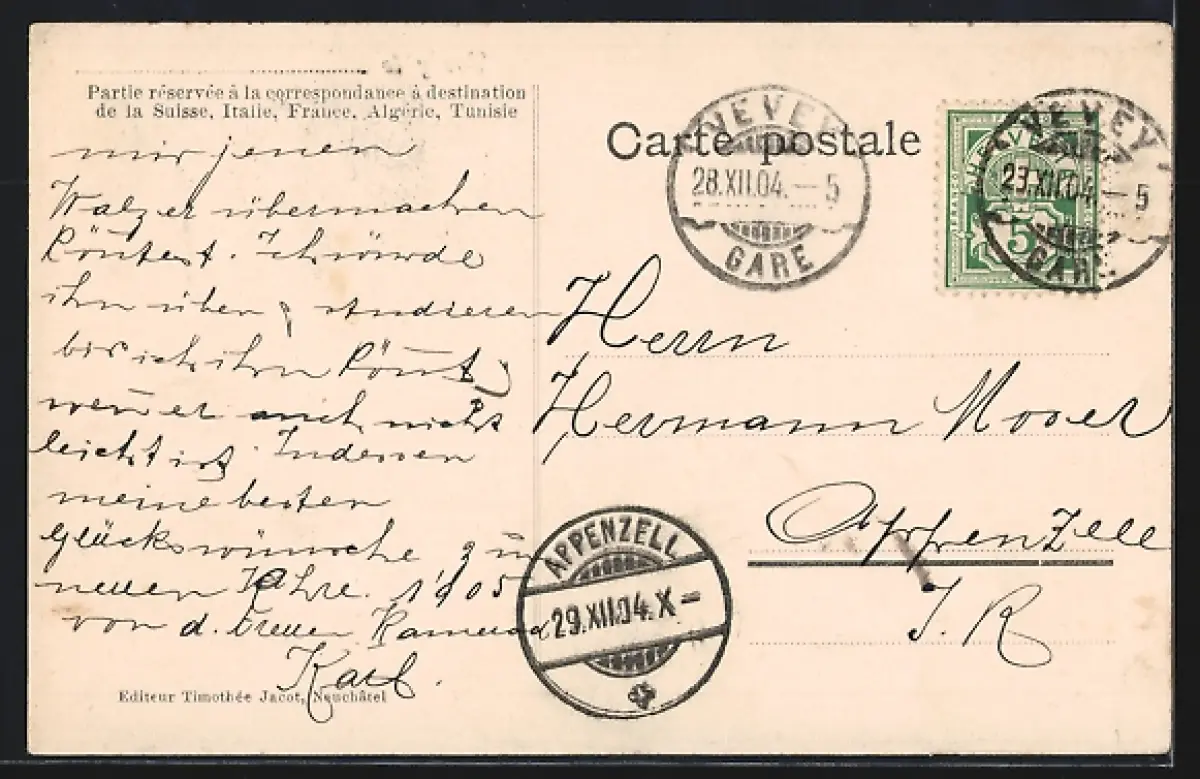 Partie réservée à la correspondance à destination
de la Suisse, Italie, France, Algérie, Tunisie
Carte postale
VEVEY
28.XII.04.–5
GARE
VEVEY
23.XII.04–5
GARE
5
mir jenen
Walzer übermachen
köntest. Ich würde
ihn üben, studieren
bis ich ihn könnt,
wen̄ er auch nicht
leicht ist. Indessen
meine besten
Glückswünsche zum
neuen Jahre 1905
von d. treuen Kamerad
Karl.
Herrn
Hermann Moser
Appenzell
I. R
APPENZELL
29.XII.04.X–
Editeur Timothée Jacot, Neuchâtel